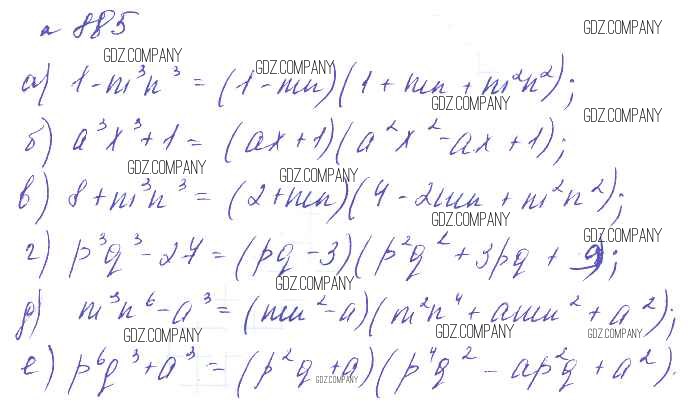 № 885
GDZ.COMPANY
GDZ.COMPANY
а) 1 - m³n³ = (1 - mn)(1 + mn + m²n²);
GDZ.COMPANY
GDZ.COMPANY
GDZ.COMPANY
б) a³x³ + 1 = (ax + 1)(a²x² - ax + 1);
GDZ.COMPANY
GDZ.COMPANY
в) 8 + m³n³ = (2 + mn)(4 - 2mn + m²n²);
GDZ.COMPANY
GDZ.COMPANY
г) p³q³ - 27 = (pq - 3)(p²q² + 3pq + 9);
GDZ.COMPANY
д) m³n⁶ - a³ = (mn² - a)(m²n⁴ + amn² + a²);
GDZ.COMPANY
GDZ.COMPANY
GDZ.COMPANY
е) p⁶q³ + a³ = (p²q + a)(p⁴q² - ap²q + a²).
GDZ.COMPANY